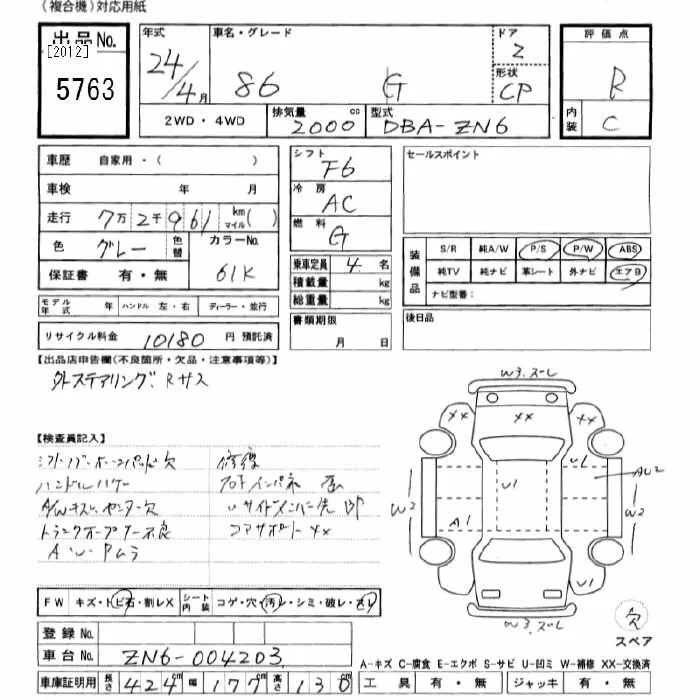 (複合機)対応用紙
出品No.
[2012]
5763
年式
24/4月
車名・グレード
86 G
ドア
2
形状
CP
評価点
R
内装
C
2WD・4WD
排気量 2000 cc
型式 DBA-ZN6
車歴 自家用・( )
車検 年 月
走行 7万2千961 km マイル( )
色 グレー 色替
カラーNo. 61K
保証書 有・無
シフト F6
冷房 AC
燃料 G
乗車定員 4 名
積載量 kg
総重量 kg
書類期限
月 日
セールスポイント
装備品
S/R 純A/W P/S P/W ABS
純TV 純ナビ 革シート 外ナビ エアB
ナビ型番:
後日品
モデル年式 年 ハンドル 左・右 ディーラー・並行
リサイクル料金 10180 円 預託済
【出品店申告欄(不良箇所・欠品・注意事項等)】
外ステアリング. Rサス
【検査員記入】
欠
ハンドル
A/Wキズ. センター欠
トランクオープナー不良
A・W・Pムラ
修復
コアサポート XX
W3.スーレ
XX
XX
XX
U1
U1
AU2
W2
W2
A1
U1
W3.スーレ
欠
スペア
FW キズ・トビ石・割レX
シート内装 コゲ・穴・汚レ・シミ・破レ・スレ
登録No.
車台No. ZN6-004203
車庫証明用 長さ 424 cm 幅 177 cm 高さ 130 cm
A-キズ C-腐食 E-エクボ S-サビ U-凹ミ W-補修 XX-交換済
工具 有・無 ジャッキ 有・無